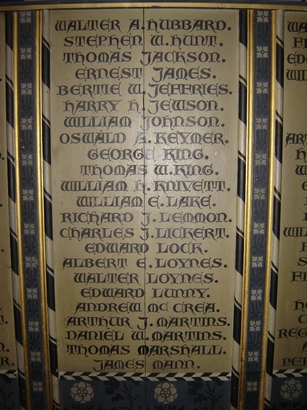 WALTER A. HUBBARD.
STEPHEN W. HUNT.
THOMAS JACKSON.
ERNEST JAMES.
BERTIE W. JEFFRIES.
HARRY H. JEWSON.
WILLIAM JOHNSON.
OSWALD A. KEYMER.
GEORGE KING.
THOMAS W. KING.
WILLIAM H. KNIVETT.
WILLIAM E. LAKE.
RICHARD J. LEMMON.
CHARLES J. LICKERT.
EDWARD LOCK.
ALBERT E. LOYNES.
WALTER LOYNES.
EDWARD LUNNY.
ANDREW MC CREA.
ARTHUR J. MARTINS.
DANIEL W. MARTINS.
THOMAS MARSHALL.
JAMES MANN.